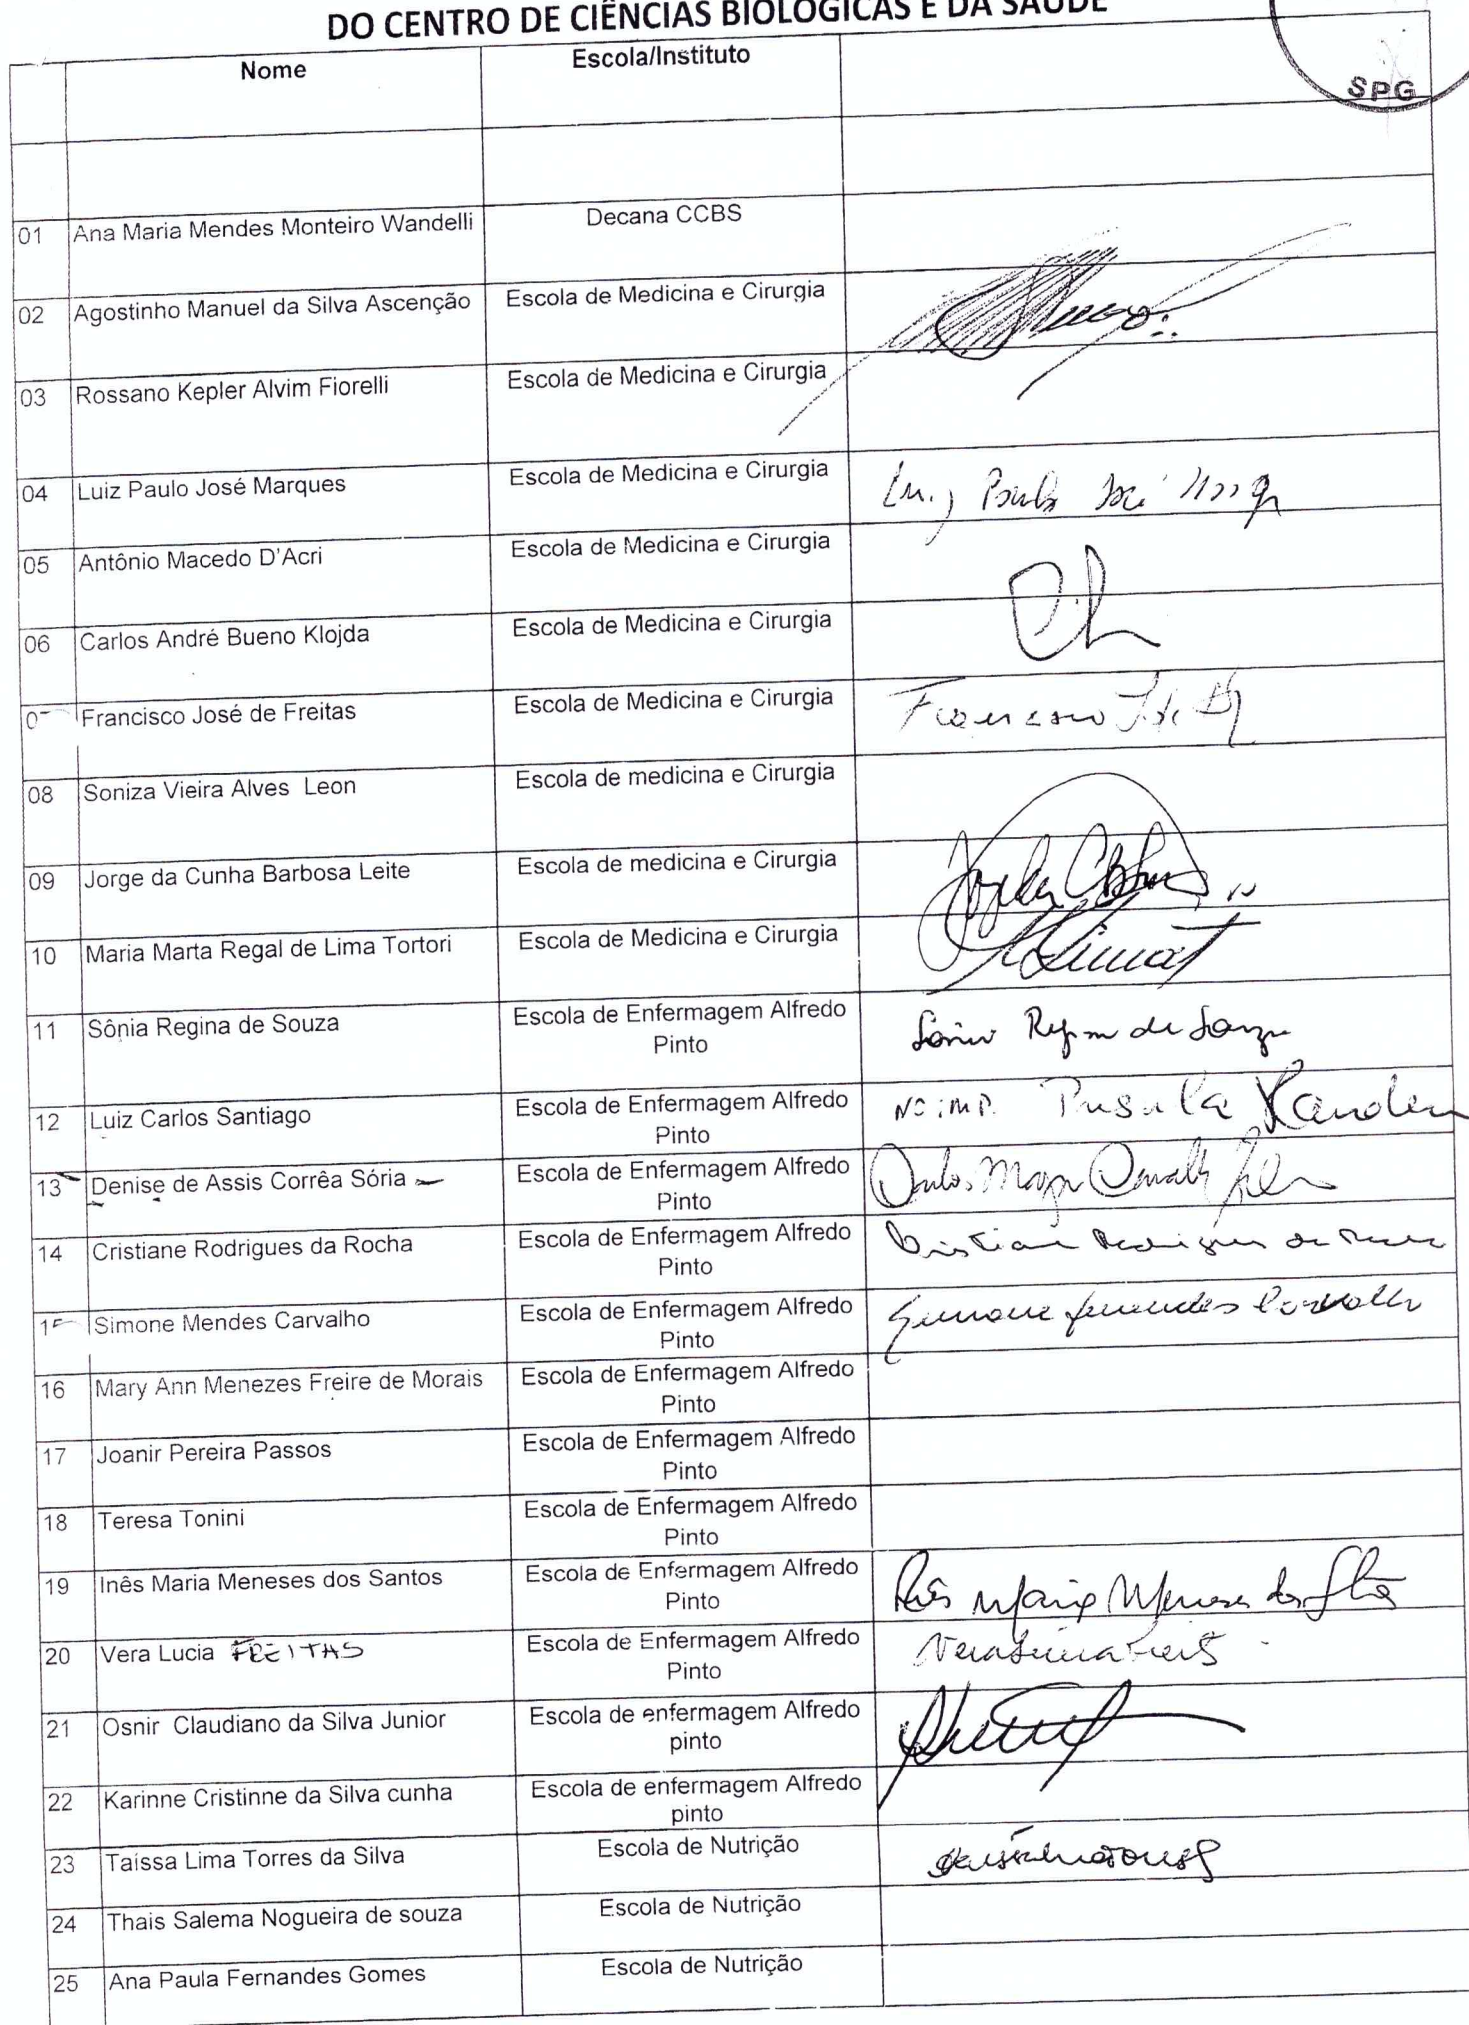 DO CENTRO DE CIÊNCIAS BIOLÓGICAS E DA SAÚDE
SPG
Nome Escola/Instituto
01 Ana Maria Mendes Monteiro Wandelli Decana CCBS
02 Agostinho Manuel da Silva Ascenção Escola de Medicina e Cirurgia
03 Rossano Kepler Alvim Fiorelli Escola de Medicina e Cirurgia
04 Luiz Paulo José Marques Escola de Medicina e Cirurgia
05 Antônio Macedo D'Acri Escola de Medicina e Cirurgia
06 Carlos André Bueno Klojda Escola de Medicina e Cirurgia
Francisco José de Freitas Escola de Medicina e Cirurgia
08 Soniza Vieira Alves Leon Escola de medicina e Cirurgia
09 Jorge da Cunha Barbosa Leite Escola de medicina e Cirurgia
10 Maria Marta Regal de Lima Tortori Escola de Medicina e Cirurgia
11 Sônia Regina de Souza Escola de Enfermagem Alfredo
Pinto
12 Luiz Carlos Santiago Escola de Enfermagem Alfredo
Pinto
13 Denise de Assis Corrêa Sória Escola de Enfermagem Alfredo
Pinto
14 Cristiane Rodrigues da Rocha Escola de Enfermagem Alfredo
Pinto
Simone Mendes Carvalho Escola de Enfermagem Alfredo
Pinto
16 Mary Ann Menezes Freire de Morais Escola de Enfermagem Alfredo
Pinto
17 Joanir Pereira Passos Escola de Enfermagem Alfredo
Pinto
18 Teresa Tonini Escola de Enfermagem Alfredo
Pinto
19 Inês Maria Meneses dos Santos Escola de Enfermagem Alfredo
Pinto
20 Vera Lucia FREITAS Escola de Enfermagem Alfredo
Pinto
21 Osnir Claudiano da Silva Junior Escola de enfermagem Alfredo
pinto
22 Karinne Cristinne da Silva cunha Escola de enfermagem Alfredo
pinto
23 Taíssa Lima Torres da Silva Escola de Nutrição
24 Thais Salema Nogueira de souza Escola de Nutrição
25 Ana Paula Fernandes Gomes Escola de Nutrição